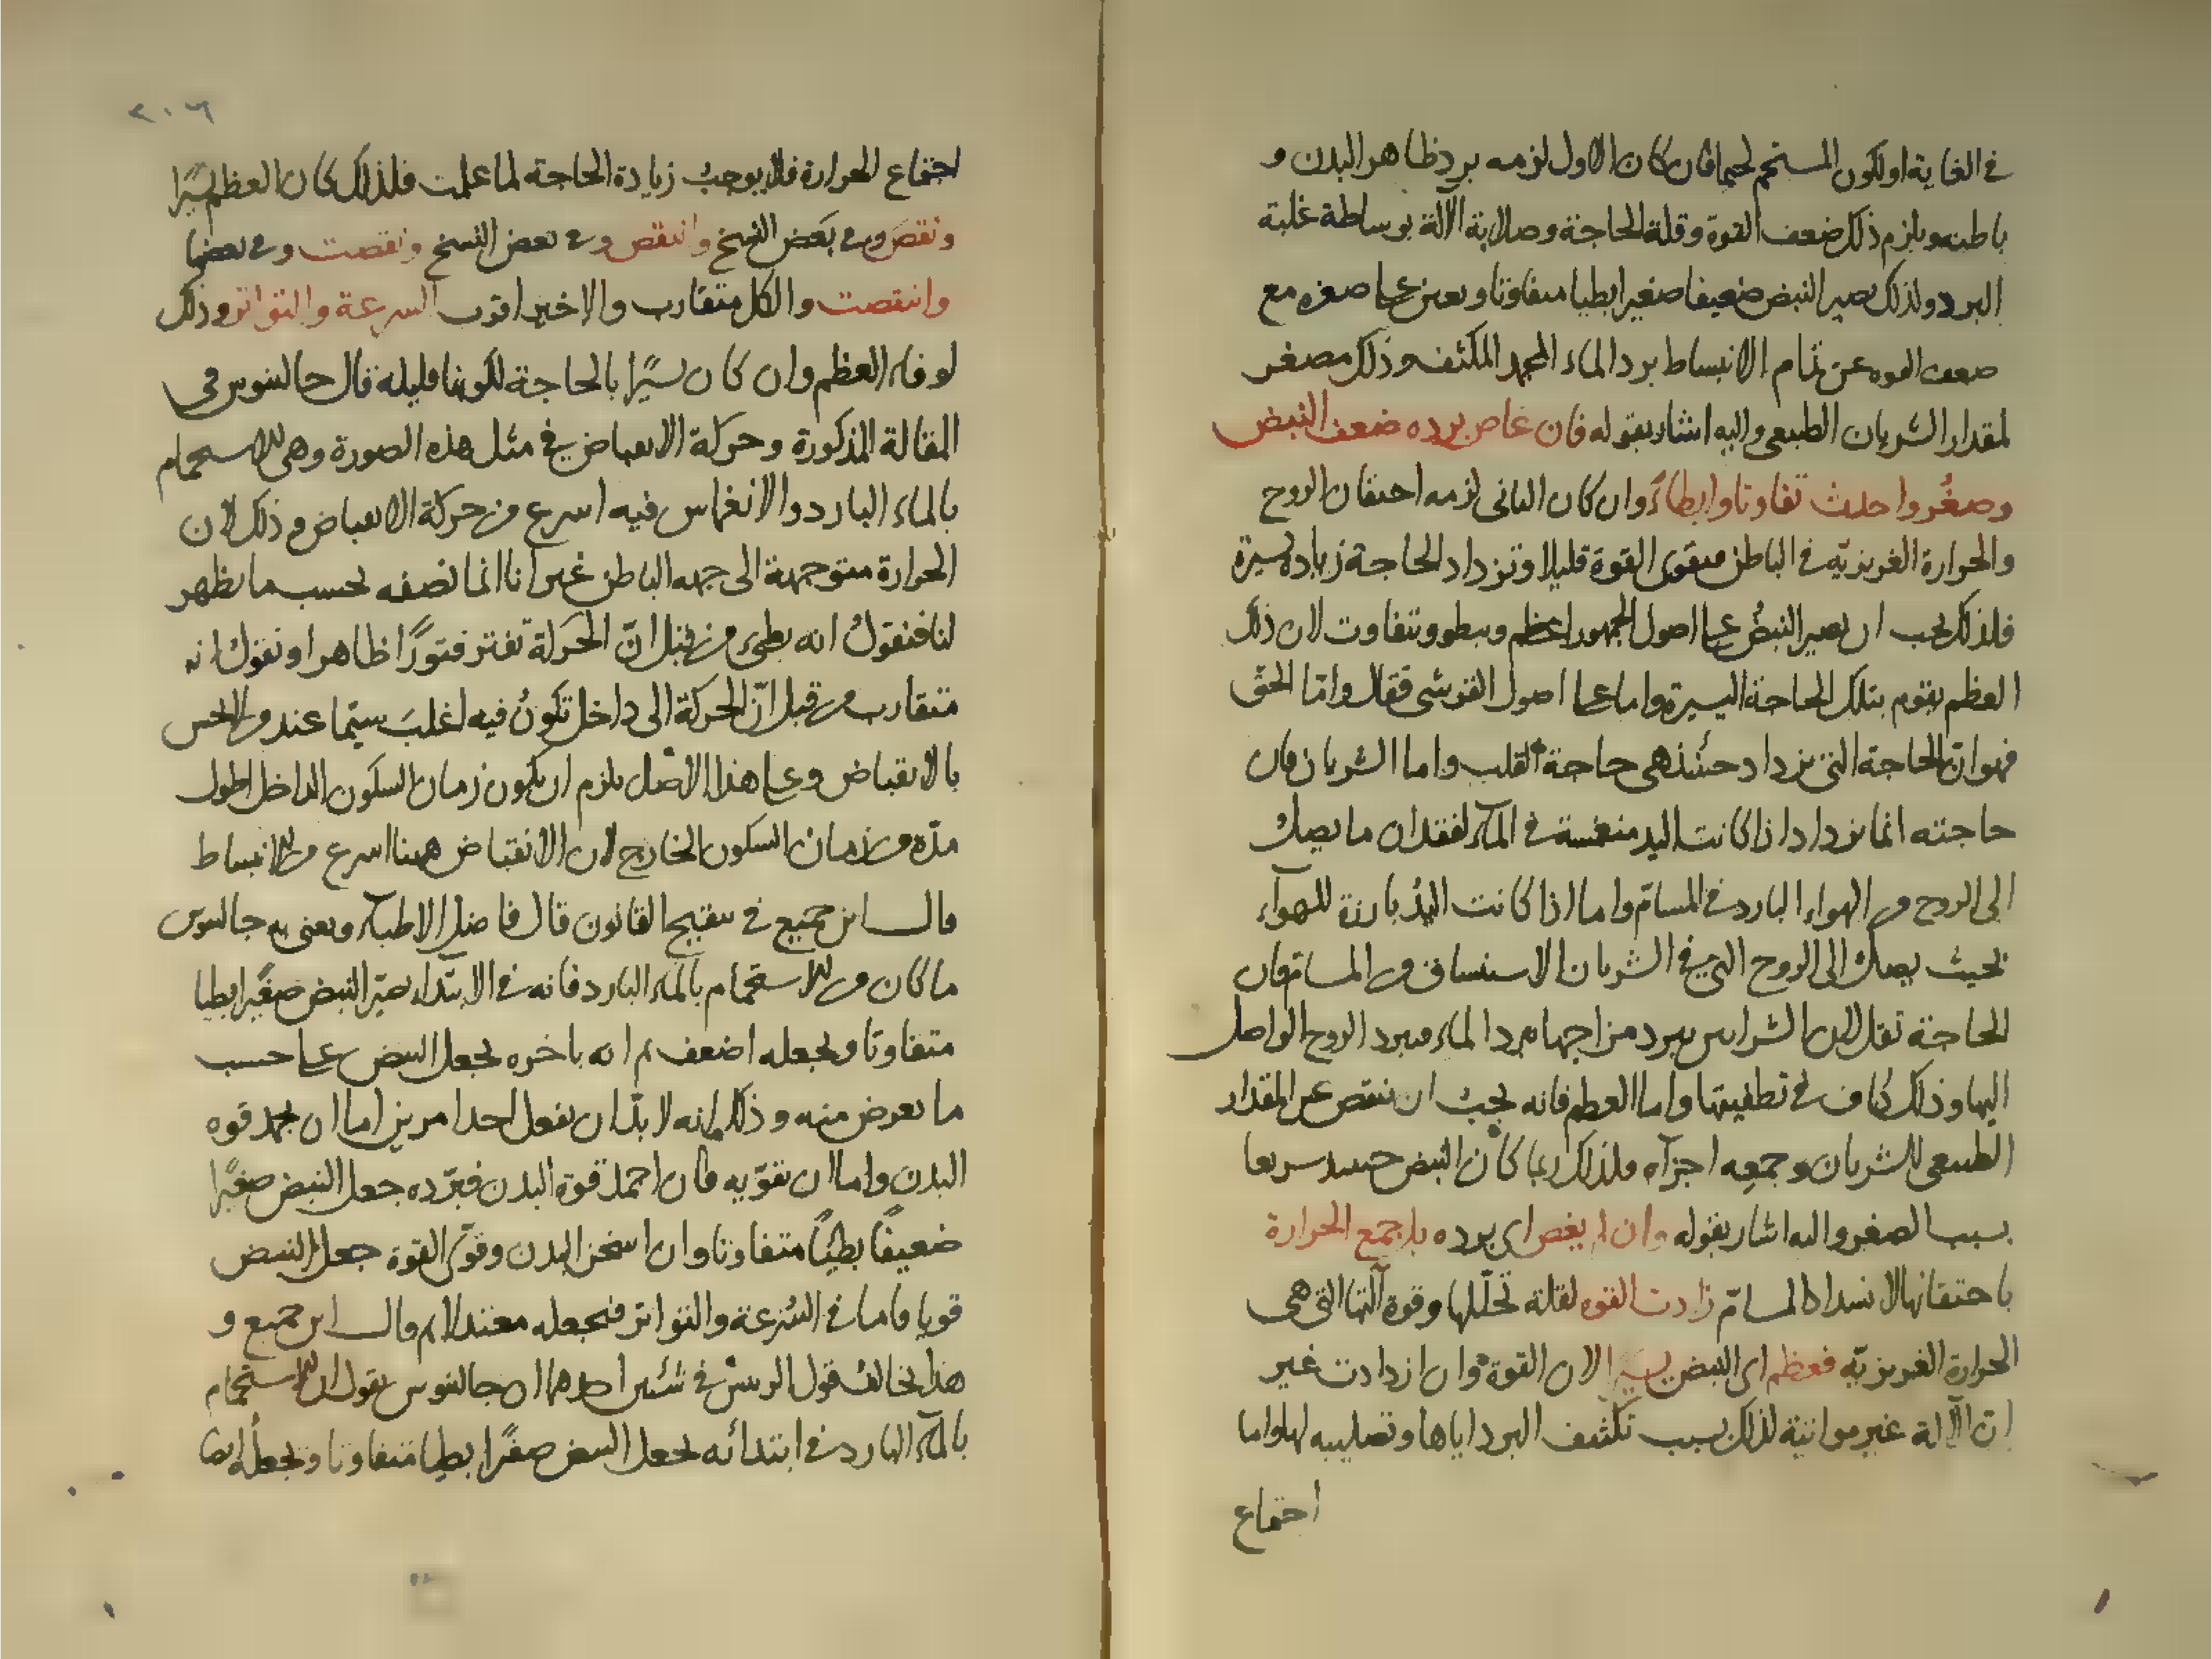 في الغاية او لكون المستحم لحيما فان كان الاول لزمه برد ظاهر البدن و
باطنه ويلزم ذلك ضعف القوة وقلة الحاجة وصلابة الآلة بوساطة غلبة
البرد ولذلك يصير النبض ضعيفا صغيرا بطيا متفاوتا ويعين على صغره مع
ضعف القوه عن تمام الانبساط برد الماء المجمد المكثف وذلك مصغر
لمقدار الشريان الطبيعى واليه اشار بقوله فان غاص برده ضعف النبض
وصغُر واحدث تفاوتا وابطاءً وان كان الثانى لزمه احتقان الروح
والحرارة الغريزيّه في الباطن فيقوى القوة قليلا وتزداد الحاجة زيادة يسيرة
فلذلك يجب ان يصير النبضُ على اصول الجمهور اعظم ويبطو ويتفاوت لان ذلك
العظم يقوم بتلك الحاجة اليسيرة واما على اصول القرشى فقال وامّا الحقّ
فهو انّ الحاجة التى تزداد حينئذ هى حاجة القلب واما الشريان فان
حاجته انما تزداد اذا كانت اليد منغمسة في المآء لفقدان ما يصل
الى الروح من الهواء البارد في المسامّ واما اذا كانت اليدُ بارزة للهوآء
بحيث يصل الى الروح التى في الشريان الاستنشاق من المسام فان
الحاجة تقل لان الشرايين يبرد مزاجها ببرد الماء فيبرد الروح الواصل
اليها وذلك كاف في تطفيتها واما العظم فانه يجب ان ينتقص عن المقدار
الطبيعى للشريان وجمعِه اجزآه فلذلك ربما كان النبض حينئذ سريعا
بسبب الصغر واليه اشار بقوله وان لم يغص اى برده بل جمع الحرارة
باحتقانها لانسداد المسامّ زادت القوه لقلة تحلّلها وقوة آلتها التى هى
الحرارة الغريزيّه فعظم اى النبض يسيرا لان القوة وان ازدادت غير
انّ الآلة غير مواتية لذلك بسبب تكثيف البرد اياها وتصليبه لها واما
اجتماع
٢٠٦
اجتماع الحرارة فلا يوجب زيادة الحاجة لما علمت فلذلك كان العظم يسيرًا
ونقصَ وفي بعض النسخ وانتقص وفي بعض النسخ ونقصت وفي بعضها
وانتقصت والكل متقارب والاخير اقرب السرعة والتواتر وذلك
لوفاء العظم وان كان يسيرًا بالحاجة لكونها قليله قال جالينوس في
المقالة المذكورة وحركة الانقباض في مثل هذه الصورة وهى الاستحمام
بالماء البارد والانغماس فيه اسرع من حركة الانقباض وذلك لان
الحرارة متوجهة الى جهه الباطن غير انا انما نصفه بحسب ما يظهر
لنا فنقولُ انه بطىء من قبل انّ الحَركة تفتر فتورًا ظاهرا او نقول انه
متقارب من قبل انّ الحركة الى داخل تكونُ فيه اغلبَ سيّما عند من لا يحس
بالانقباض وعلى هذا الاصْل يلزم ان يكون زمان السكون الداخل اطول
مدّه من زمان السكون الخارج لان الانقباض ههنا اسرع من الانبساط
قال ابن جميع في تنقيح القانون قال فاضل الاطبآء ويعنى به جالينوس
ما كان من الاستحمام بالماء البارد فانه في الابتداء يصيّر النبض صغيرًا بطيا
متفاوتا ويجعله اضعف ثم انه باخره يجعل النبض على حسب
ما يعرض منه وذلك انه لا بدّ ان يفعل احد امرين اما ان يخمد قوه
البدن واما ان تقوّيه فان اخمد قوة البدن فبرّده جعل النبض صغيرًا
ضعيفًا بطيًا متفاوتا وان اسخن البدن وقوّى القوة جعل النبض
قويا فاما في السُرعة والتواتر فيجعله معتدلا ثم قال ابن جميع و
هذا يخالفُ قول الرييس في شئين احدهما ان جالينوس يقول ان الاستحمام
بالمآء البارد في ابتدائه يجعل النبض صغيرًا بطيا متفاوتا ويجعلُه ايضا